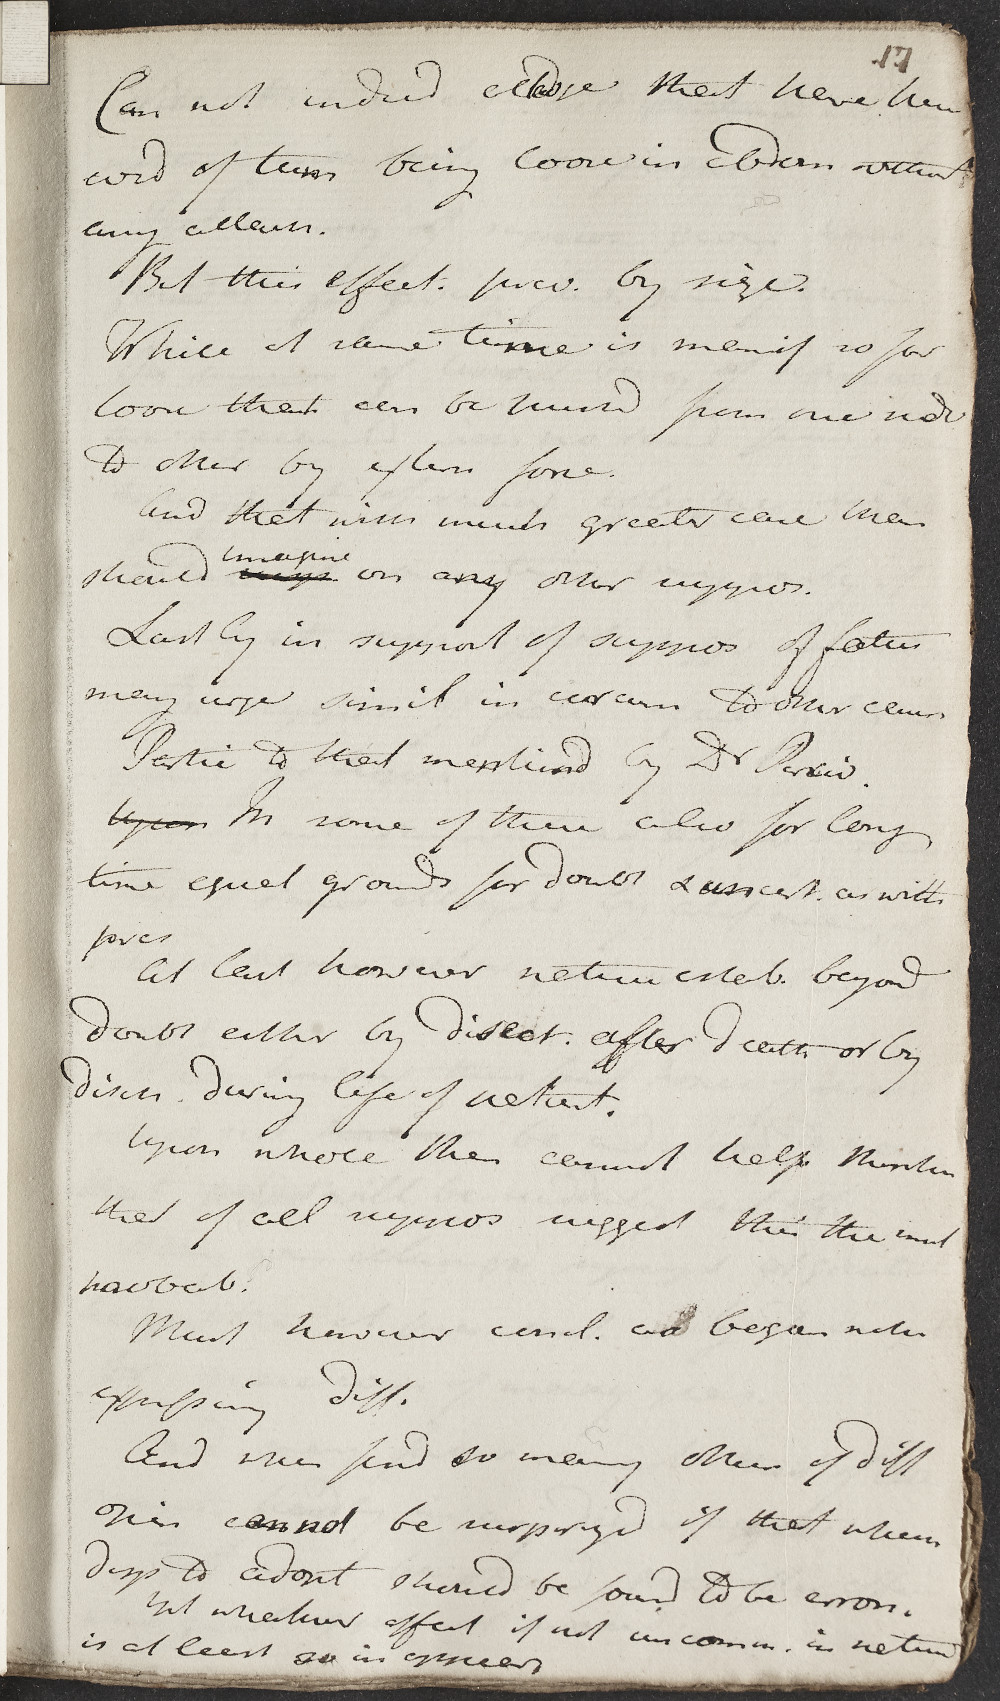 17
Can not indeed alledge that have hea
cord of tum being loose in Abdom without
any attach.
But this effect. prev. by size.
While at same time is manif so far
loose that can be turnd from one side
to other by extern force.
And that with much greater ease than
should imagine on any other suppos.
Lastly in support of suppos of fœtus
may urge simil in circum to other cases
Partic to that mentiond by Dr
upon In some of them also for long
time equal grounds for doubt & uncert. as with
pres
At last however nature estab. beyond
doubt either by disect. after death or by
disch. during life of patient.
Upon whole then cannot help thinkin
that of all suppos suggest this the most
probab.
Must however concl. as began with
expressing diff.
And when find so many others of diff
opin cannot be surprized if that whem
disp to adopt should be found to be erron.
Yet whatever effect if not uncomm. in nature
is at least so in appear